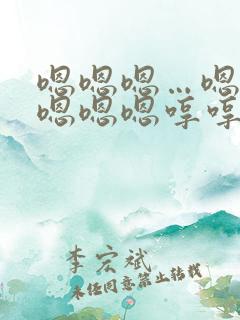 嗯嗯嗯…嗯
嗯嗯嗯哼哼
李宏斌
未经同意禁止转载